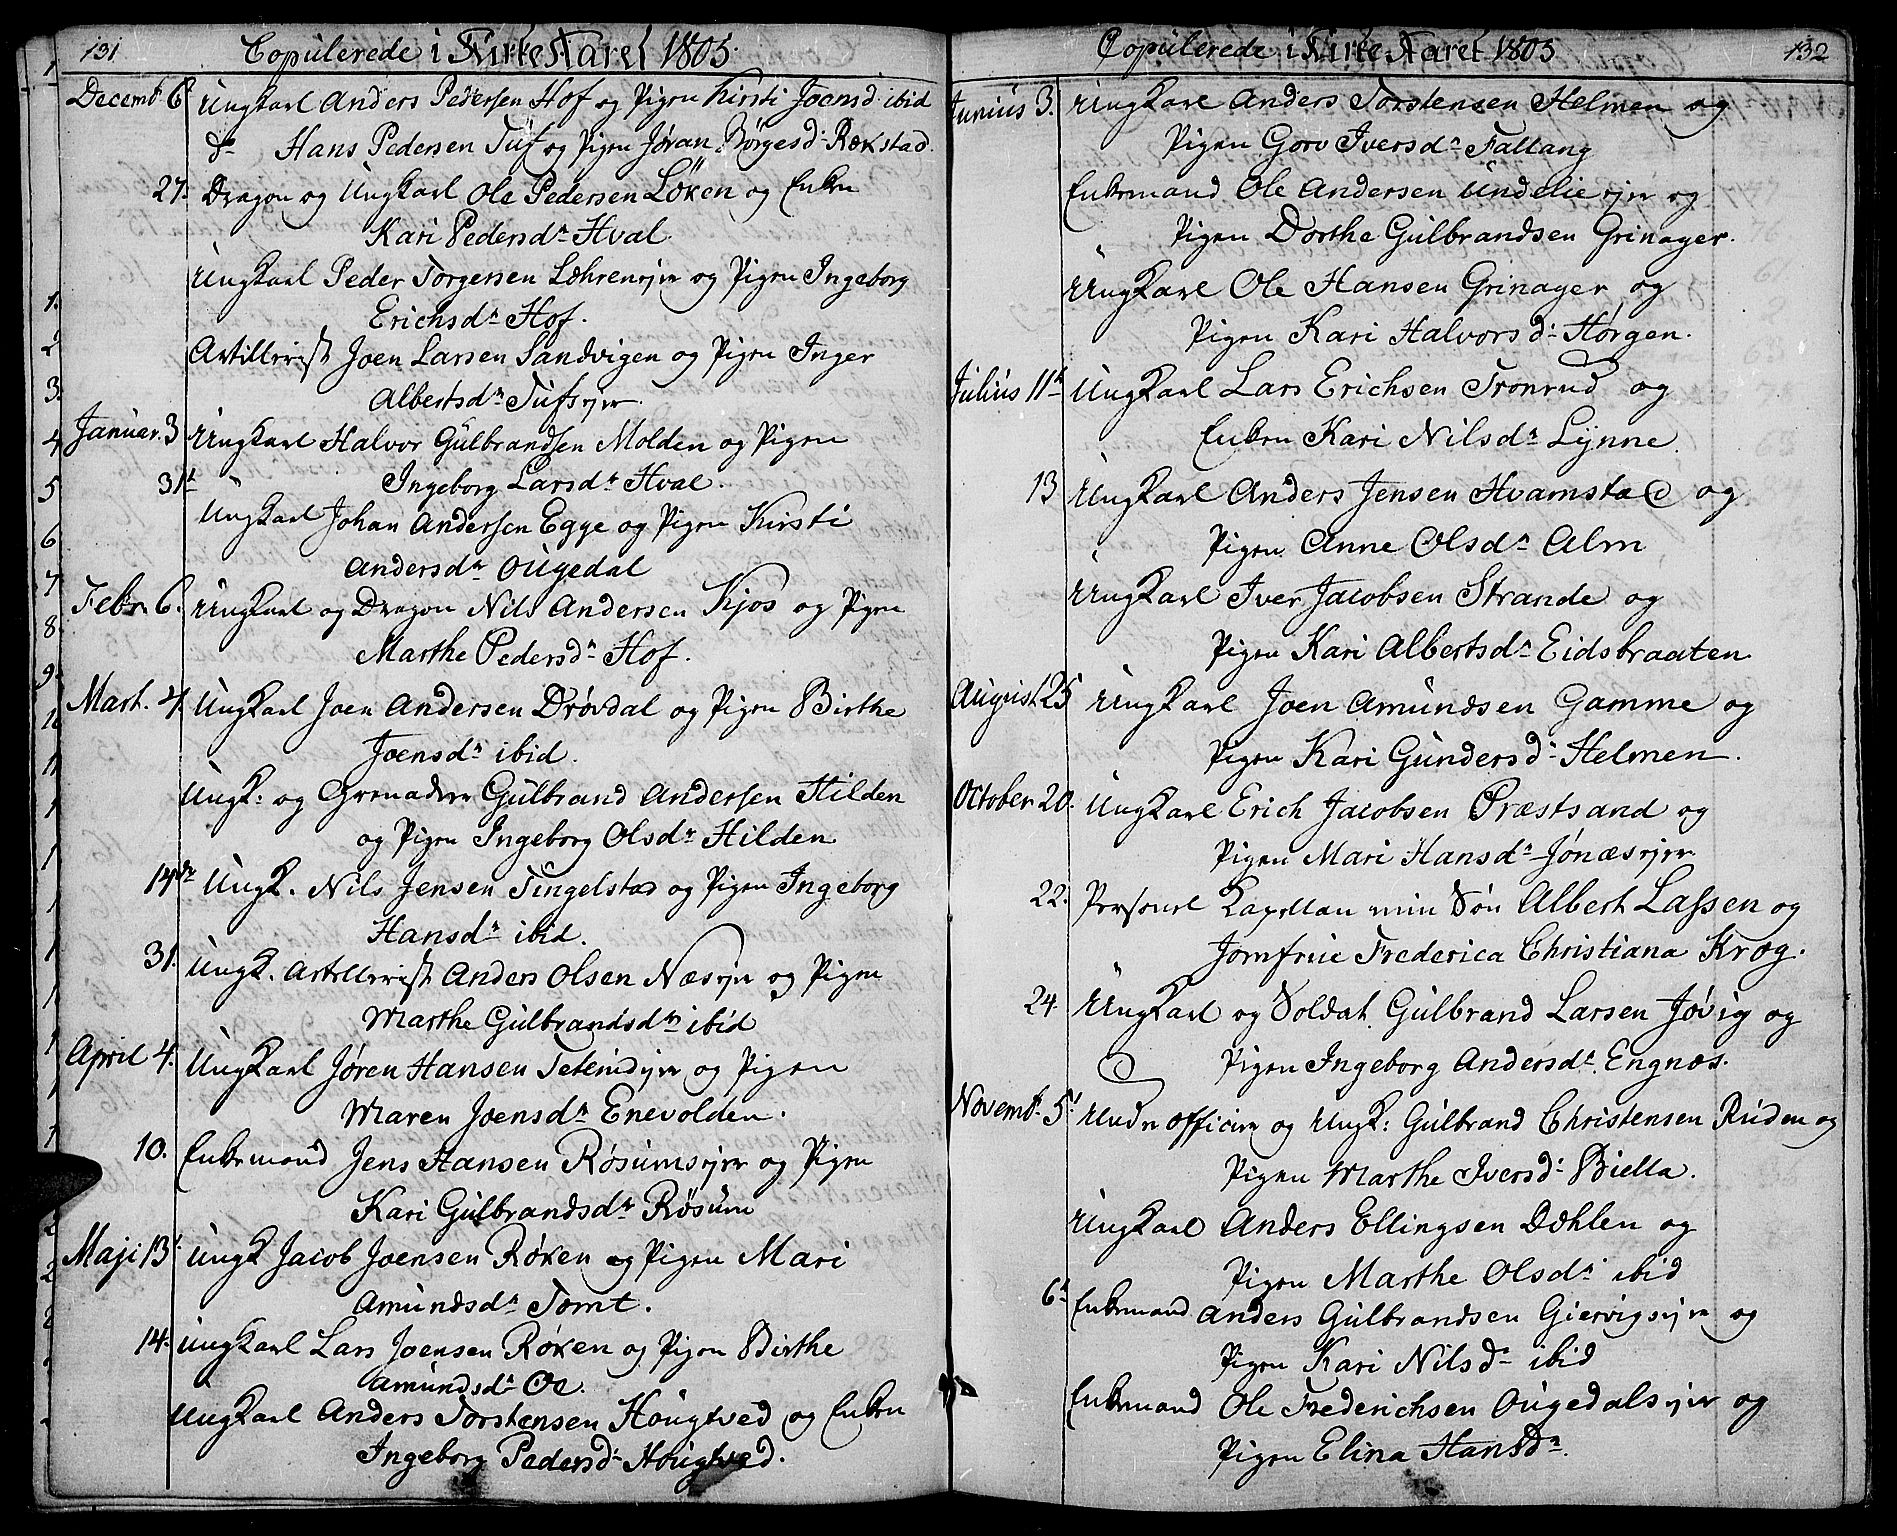 131 Copulerede i KirkeAaret 1805.
Decembr 6 Ungkarl Anders Pedersen Hof og Pigen Kirsti Joensd ibid
do Hans Pedersen Tuf og Pigen Jøran Børgesdr Rækstad.
27. Dragon og Ungkarl Ole Pedersen Løken og Enken
Kari Pedersdr Hval
Ungkarl Peder Torgersen Læhrenejer og Pigen Ingeborg
Erichsdr Hof.
Artillerist Joen Larsen Sandvigen og Pigen Inger
Albertsdr Tufsejer.
Januar. 3 Ungkarl Halvor Gulbrandsen Molden og Pigen
Ingeborg Larsdr Hval.
31t Ungkarl Johan Andersen Egge og Pigen Kirsti
Andersdr Ougedal
Febr. 6. Ungkarl og Dragon Nils Andersen Kjos og Pigen
Marthe Pedersdr Hof.
Mart. 4 Ungkarl Joen Andersen Drøvdal og Pigen Birthe
Joensdr ibid.
Ungk: og Grenadeer Gulbrand Andersen Hilden
og Pigen Ingeborg Olsdr Hilden
14de Ungk. Nils Jensen Tingelstad og Pigen Ingeborg
Hansdr ibid.
31. Ungk. Artillerist Anders Olsen Næsejer og Pigen
Marthe Gulbrandsdr ibid
April 4. Ungkarl Jøren Hansen Teteindejer og Pigen
Maren Joensdr Enevolden.
10. Enkemand Jens Hansen Røsumsejer og Pigen
Kari Gulbrandsdr Røsum
Maji 13t Ungk Jacob Joensen Røken og Pigen Mari
Amundsdr Tomt.
14. Ungkarl Lars Joensen Røken og Pigen Birthe
Amundsdr Oe.
Ungkarl Anders Torstensen Hougtved og Enken
Ingeborg Pedersdr Hougtved.
Copulerede i KirkeAaret 1805 132
Junius 3. Ungkarl Anders Torstensen Helmen og
Pigen Goro Iversdr Fallang
Enkemand Ole Andersen Undelieejer og
Pigen Dorthe Gulbrandsen Grinager.
Ungkarl Ole Hansen Grinager og
Pigen Kari Halvorsdr Hørgen.
Julius 11te Ungkarl Lars Erichsen Tronrud og
Enken Kari Nilsdr Lynne.
13 Ungkarl Anders Jensen Hvamstad og
Pigen Anne Olsdr Alm
Ungkarl Iver Jacobsen Strande og
Pigen Kari Albertsdr Eidsbraaten
August 25 Ungkarl Joen Amundsen Gamme og
Pigen Kari Gundersdr Helmen.
October 20. Ungkarl Erich Jacobsen Præstsand og
Pigen Mari Hansdr Jønæsejer
22. Personel Kapellan min Søn Albert Lassen og
Jomfrue Frederica Christiana Krog.
24. Ungkarl og Soldat Gulbrand Larsen Jøvig og
Pigen Ingeborg Andersdr Engnæs.
Novembr 5t Underofficier og Ungk: Gulbrand Christensen Ruden og
Pigen Marthe Iversdr Biella.
Ungkarl Anders Ellingsen Dæhlen og
Pigen Marthe Olsdr ibid
6t Enkemand Anders Gulbrandsen Giervigsejer og
Pigen Kari Nilsdr ibid
Enkemand Ole Frederichsen Ougedalsejer og
Pigen Elina Hansdr.